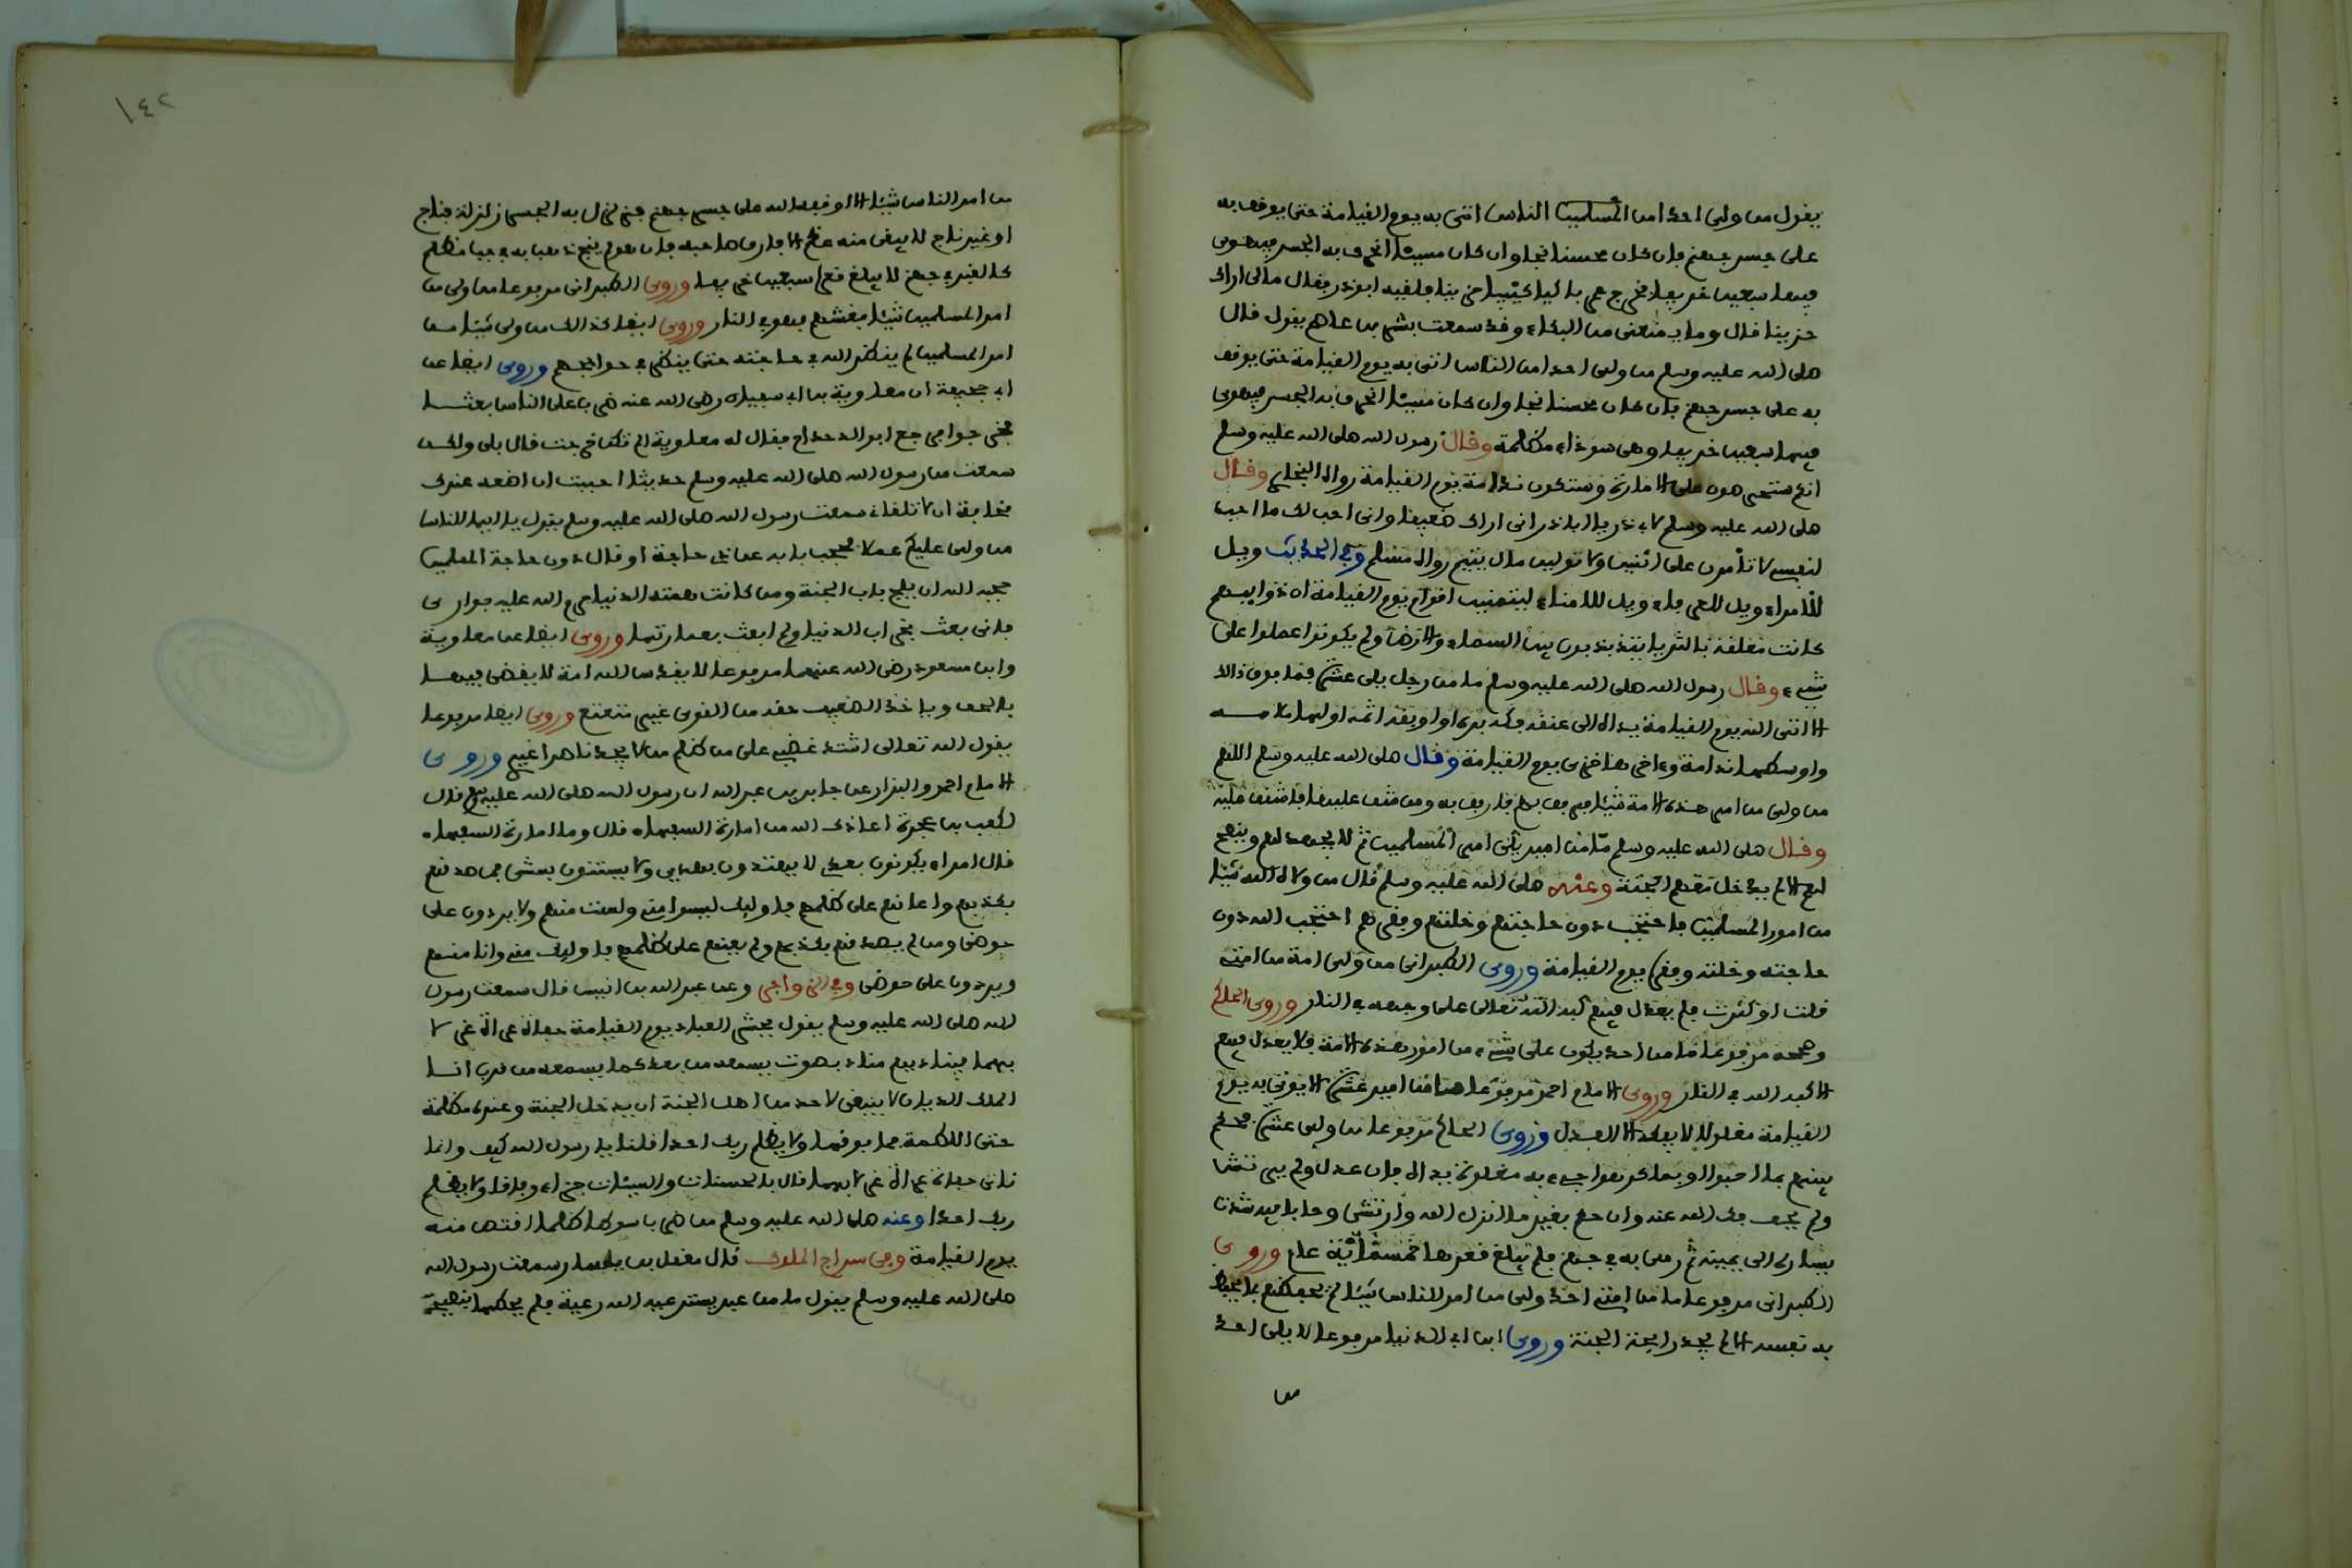 يقول من ولى احدا من المسلمين الناس اتى به يوم القيامة حتى يوقف به
على جسر جهنم فإن كان محسنا نجا وان كان مسيئا انخرق به الجسر فيهوى
فيها سبعين خريفا فخرج عمر باكيا كئيبا حزينا فلقيه ابوذر فقال مالى اراك
حزينا قال وما يمنعنى من البكاء وقد سمعت بشر بن عاصم يقول قال
صلى الله عليه وسلم من ولى احدا من الناس اتى به يوم القيامة حتى يوقف
به على جسر جهنم فإن كان محسنا نجا وان كان مسيئا انخرق به الجسر فيهوى
فيها سبعين خريفا وهى سوداء مظلمة وقال رسول الله صلى الله عليه وسلم
انكم ستحرصون على الامارة وستكون ندامة يوم القيامة رواه البخارى وقال
صلى الله عليه وسلم لابى ذر يا ابا ذر انى اراك ضعيفا وانى احب لك ما احب
لنفسى لا تأمرن على اثنين ولا تولين مال يتيم رواه مسلم وفى الحديث ويل
للأمراء ويل للعرفاء ويل للامناء ليتمنين اقوام يوم القيامة ان ذوايبهم
كانت معلقة بالثريا يتذبذبون بين السماء والارض ولم يكونوا عملوا على
شىء وقال رسول الله صلى الله عليه وسلم ما من رجل يلى عشرة فما فوق ذالك
الا اتى الله يوم القيامة يداه الى عنقه فكه بره او اوبقه اثمه اولها ملامـه
واوسطها ندامة وءاخرها خزى يوم القيامة وقال صلى الله عليه وسلم اللهم
من ولى من امر هذه الامة شيئا فرفق بهم فارفق به ومن شق عليها فاشقق عليه
وقال صلى الله عليه وسلم ما من امير يلى امر المسلمين ثم لا يجهد لهم وينصح
لهم الا لم يدخل معهم الجنة وعنه صلى الله عليه وسلم قال من ولاه الله شيئا
من امور المسلمين فاحتجب دون حاجتهم وخلتهم وفقرهم احتجب الله دون
حاجته وخلته وفقره يوم القيامة وروى الطبرانى من ولى امة من امتى
قلت او كثرت فلم يعدل فيهم كبه الله تعالى على وجهه فى النار وروى الحاكم
وصححه مرفوعا ما من احد يكون على شىء من امور هذه الامة فلا يعدل فيهم
الا كبه الله فى النار وروى الامام احمد مرفوعا ما من امير عشرة الا يوتى به يوم
القيامة مغلولا لا يفكه الا العدل وروى الحاكم مرفوعا من ولى عشرة فحكم
بينهم بما احبوا او بما كرهوا جىء به مغلولة يداه فإن عدل ولم يرتش
ولم يحف فك الله عنه وان حكم بغير ما انزل الله وارتشى وحابا فيه شدت
يساره الى يمينه ثم رمى به فى جهنم فلم يبلغ قعرها خمسمائة عام وروى
الطبرانى مرفوعا ما من امتى احد ولى من امر الناس شيئا لم يحفظهم بما يحفظ
به نفسه الا لم يجد رايحة الجنة وروى ابن ابى الدنيا مرفوعا لا يلى احد
من
١٤٢
من امر الناس شيئا الا اوقفه الله على جسر جهنم فيزلزل به الجسر زلزلة فناج
او غير ناج لا يبقى منه عظم الا فارق صاحبه فإن هو لم ينج ذهب به فى جب مظلم
كالقبر فى جهنم لا يبلغ قعره سبعين خريفا وروى الطبرانى مرفوعا من ولى من
امر المسلمين شيئا فغشهم فهو فى النار وروى ايضا كذالك من ولى شيئا من
امر المسلمين لم ينظر الله فى حاجته حتى ينظر فى حوائجهم وروى ايضا عن
ابى جحيفة ان معاوية بن ابى سفيان رضى الله عنه ضرب على الناس بعثـا
فخرجوا فرجع ابو الدحداح فقال له معاوية الم تكن خرجت قال بلى ولكن
سمعت من رسول الله صلى الله عليه وسلم حديثا احببت ان اضعه عندك
مخافة ان لا تلقانى سمعت رسول الله صلى الله عليه وسلم يقول يا ايها الناس
من ولى عليكم عملا فحجب بابه عن ذى حاجة او قال دون حاجة المسلمين
حجبه الله ان يلج باب الجنة ومن كانت همته الدنيا حرم الله عليه جوارى
فانى بعثت بخراب الدنيا ولم ابعث بعمارتها وروى ايضا عن معاوية
وابن مسعود رضى الله عنهما مرفوعا لا يقدس الله امة لا يقضى فيهـا
بالحق وياخذ الضعيف حقه من القوى غير متعتع وروى ايضا مرفوعا
يقول الله تعالى اشتد غضبى على من ظلم من لا يجد ناصرا غيرى وروى
الامام احمد والبزار عن جابر بن عبد الله ان رسول الله صلى الله عليه وسلم قال
لكعب بن عجرة اعاذك الله من امارة السفهاء قال وما امارة السفهاء
قال امراء يكونون بعدى لا يهتدون بهديى ولا يستنون بسنتى فمن صدقهم
بكذبهم واعانهم على ظلمهم فاوليك ليسوا منى ولست منهم ولا يردون على
حوضى ومن لم يصدقهم بكذبهم ولم يعنهم على ظلمهم فاوليك منى وانا منهم
ويردون على حوضى وفى الزواجر وعن عبد الله بن انيس قال سمعت رسول
الله صلى الله عليه وسلم يقول يحشر العباد يوم القيامة حفاة عراة غرلا
بهما فيناديهم مناد بصوت يسمعه من بعد كما يسمعه من قرب انـا
الملك الديان لا ينبغى لاحد من اهل الجنة ان يدخل الجنة وعنده مظلمة
حتى اللطمة فما فوقها ولا يظلم ربك احدا قلنا يا رسول الله كيف وانما
ناتى حفاة عراة غرلا بهما قال بالحسنات والسيئات جزاء وفاقا ولا يظلم
ربك احدا وعنه صلى الله عليه وسلم من ضرب سوطا ظلما اقتص منه
يوم القيامة وفى سراج الملوك قال معقل بن يسار سمعت رسول الله
صلى الله عليه وسلم يقول ما من عبد يسترعيه الله رعية فلم يحطها بنصيحة